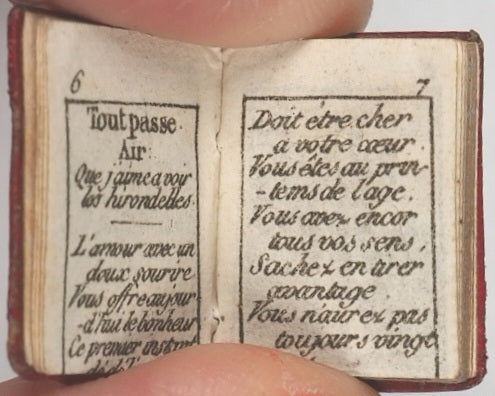 6
Tout passe
Air
Que j'aime a voir
les hirondelles.
L'amour avec un
doux sourire
Vous offre aujour-
-d'hui le bonheur
Ce premier instant
7
Doit être cher
a votre cœur.
Vous êtes au prin-
-tems de l'age.
Vous avez encor
tous vos sens.
Sachez en tirer
avantage.
Vous n'aurez pas
toujours vingt